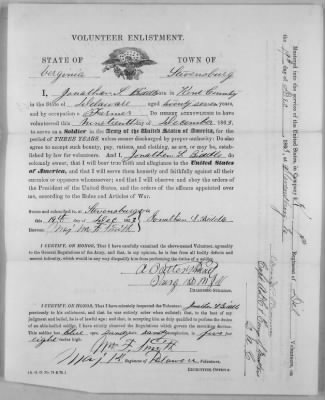 VOLUNTEER ENLISTMENT.
STATE OF TOWN OF
Virginia Stevensburg
I, Jonathan S. Biddle born in Kent County
in the State of Delaware aged twenty seven years,
and by occupation a Farmer DO HEREBY ACKNOWLEDGE to have
volunteered this nineteenth day of December 1863,
to serve as a Soldier in the Army of the United States of America, for the
period of THREE YEARS, unless sooner discharged by proper authority: Do also
agree to accept such bounty, pay, rations, and clothing, as are, or may be, estab-
lished by law for volunteers. And I, Jonathan S. Biddle do
solemnly swear, that I will bear true faith and allegiance to the United States
of America, and that I will serve them honestly and faithfully against all their
enemies or opposers whomsoever; and that I will observe and obey the orders of
the President of the United States, and the orders of the officers appointed over
me, according to the Rules and Articles of War.
Sworn and subscribed to, at Stevensburg Va
this 19th day of Dec 1863
BEFORE Maj. Wm F. Smith
I CERTIFY, ON HONOR, That I have carefully examined the above-named Volunteer, agreeably
to the General Regulations of the Army, and that, in my opinion, he is free from all bodily defects and
mental infirmity, which would in any way disqualify him from performing the duties of a soldier.
EXAMINING SURGEON.
I CERTIFY, ON HONOR, That I have minutely inspected the Volunteer, Jonathan S. Biddle
previously to his enlistment, and that he was entirely sober when enlisted; that, to the best of my
judgment and belief, he is of lawful age; and that, in accepting him as duly qualified to perform the duties
of an able-bodied soldier, I have strictly observed the Regulations which govern the recruiting service.
This soldier has blue eyes, sandy hair, complexion, is five feet
eight inches high.
Wm F. Smith
Maj. 1st Regiment of Delaware Volunteers,
RECRUITING OFFICER.
Mustered into the service of the United States, in Company
Regiment of Del Volunteers, on
the 19th day of Dec 1863, at Stevensburg Va